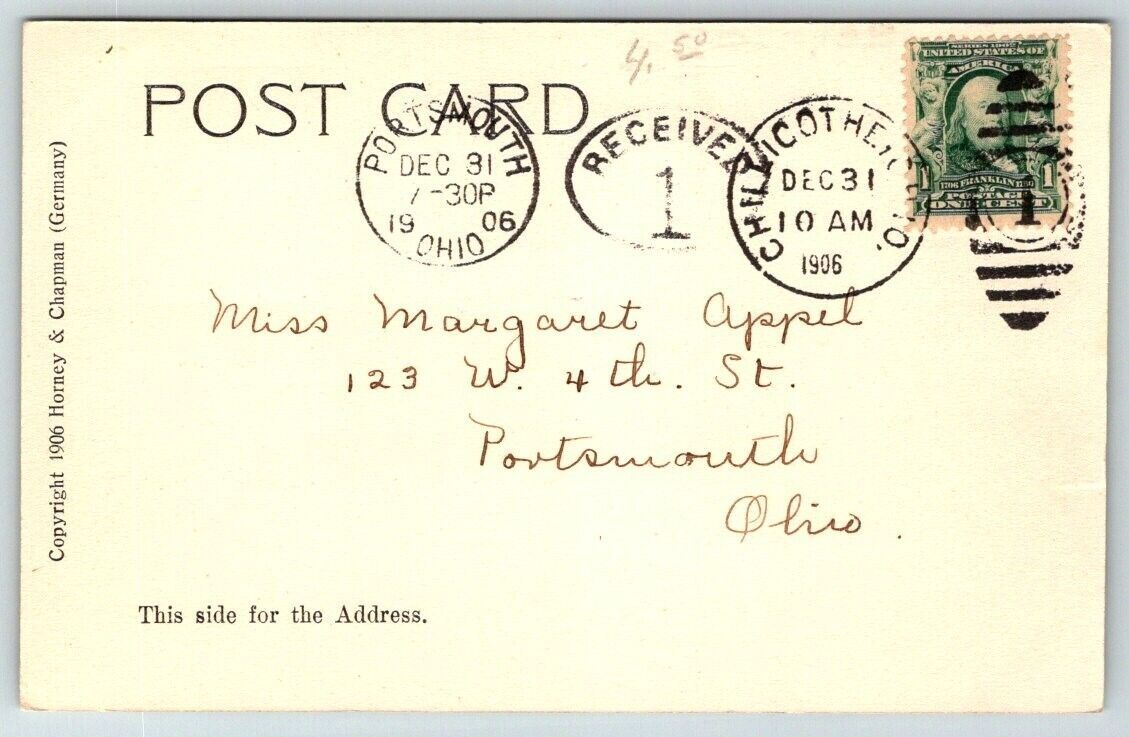 4.50
POST CARD
PORTSMOUTH
DEC 31
7-30P
19 06
OHIO
RECEIVED
1
CHILLICOTHE, OHIO.
DEC 31
10 AM
1906
SERIES 1902
UNITED STATES OF
AMERICA
1706 FRANKLIN 1790
1 1
POSTAGE
ONE CENT
1
Miss Margaret Appel
123 W. 4th. St.
Portsmouth
Ohio.
Copyright 1906 Horney & Chapman (Germany)
This side for the Address.